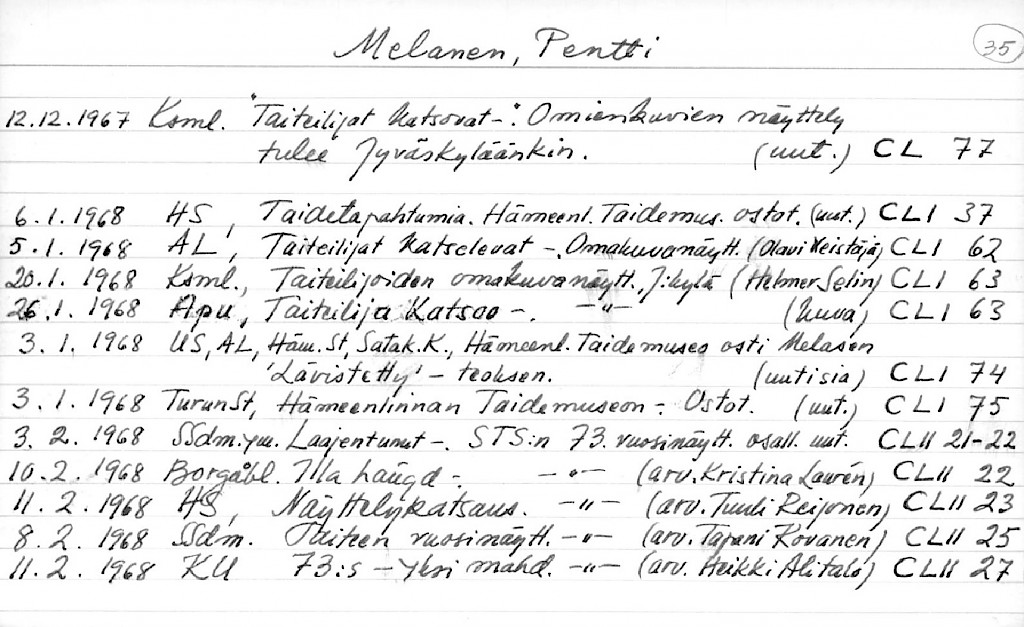 Melanen, Pentti
35
12.12.1967 Ksml. "Taiteilijat katsovat-". Omienkuvien näyttely
tulee Jyväskyläänkin. (uut.) CL 77
6.1.1968 HS, Taidetapahtumia. Hämeenl. Taidemus. ostot. (uut.) CLI 37
5.1.1968 AL, Taiteilijat katselevat -. Omakuvanäytt. (Olavi Veistäjä) CLI 62
20.1.1968 Ksml., Taiteilijoiden omakuvanäytt. J:kylä (Helmer Selin) CLI 63
26.1.1968 Apu, Taiteilija Katsoo -. -"- (kuva) CLI 63
3.1.1968 US, AL, Häm.St, Satak.K., Hämeenl. Taidemuseo osti Melasen
'Lävistetty' - teoksen. (uutisia) CLI 74
3.1.1968 TurunSt, Hämeenlinnan Taidemuseon -. Ostot. (uut.) CLI 75
3.2.1968 SSdm. ym. Laajentunut -. STS:n 73. vuosinäytt. osall. uut. CLII 21-22
10.2.1968 Borgåbl. Illa hängd -. -"- (arv. Kristina Lawrén) CLII 22
11.2.1968 HS, Näyttelykatsaus. -"- (arv. Tuuli Reijonen) CLII 23
8.2.1968 SSdm. Taiteen vuosinäytt. -"- (arv. Tapani Kovanen) CLII 25
11.2.1968 KU 73:s - yksi mahd. -"- (arv. Heikki Alitalo) CLII 27